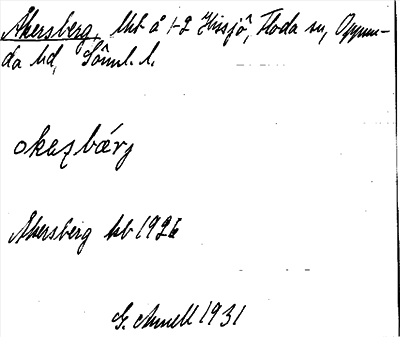 Åkersberg, lht å 1-2 Hissjö, Floda sn, Oppun-
da hd, Sörml. l.
okaʂbærj
Åkersberg kb 1926
G. Annell 1931